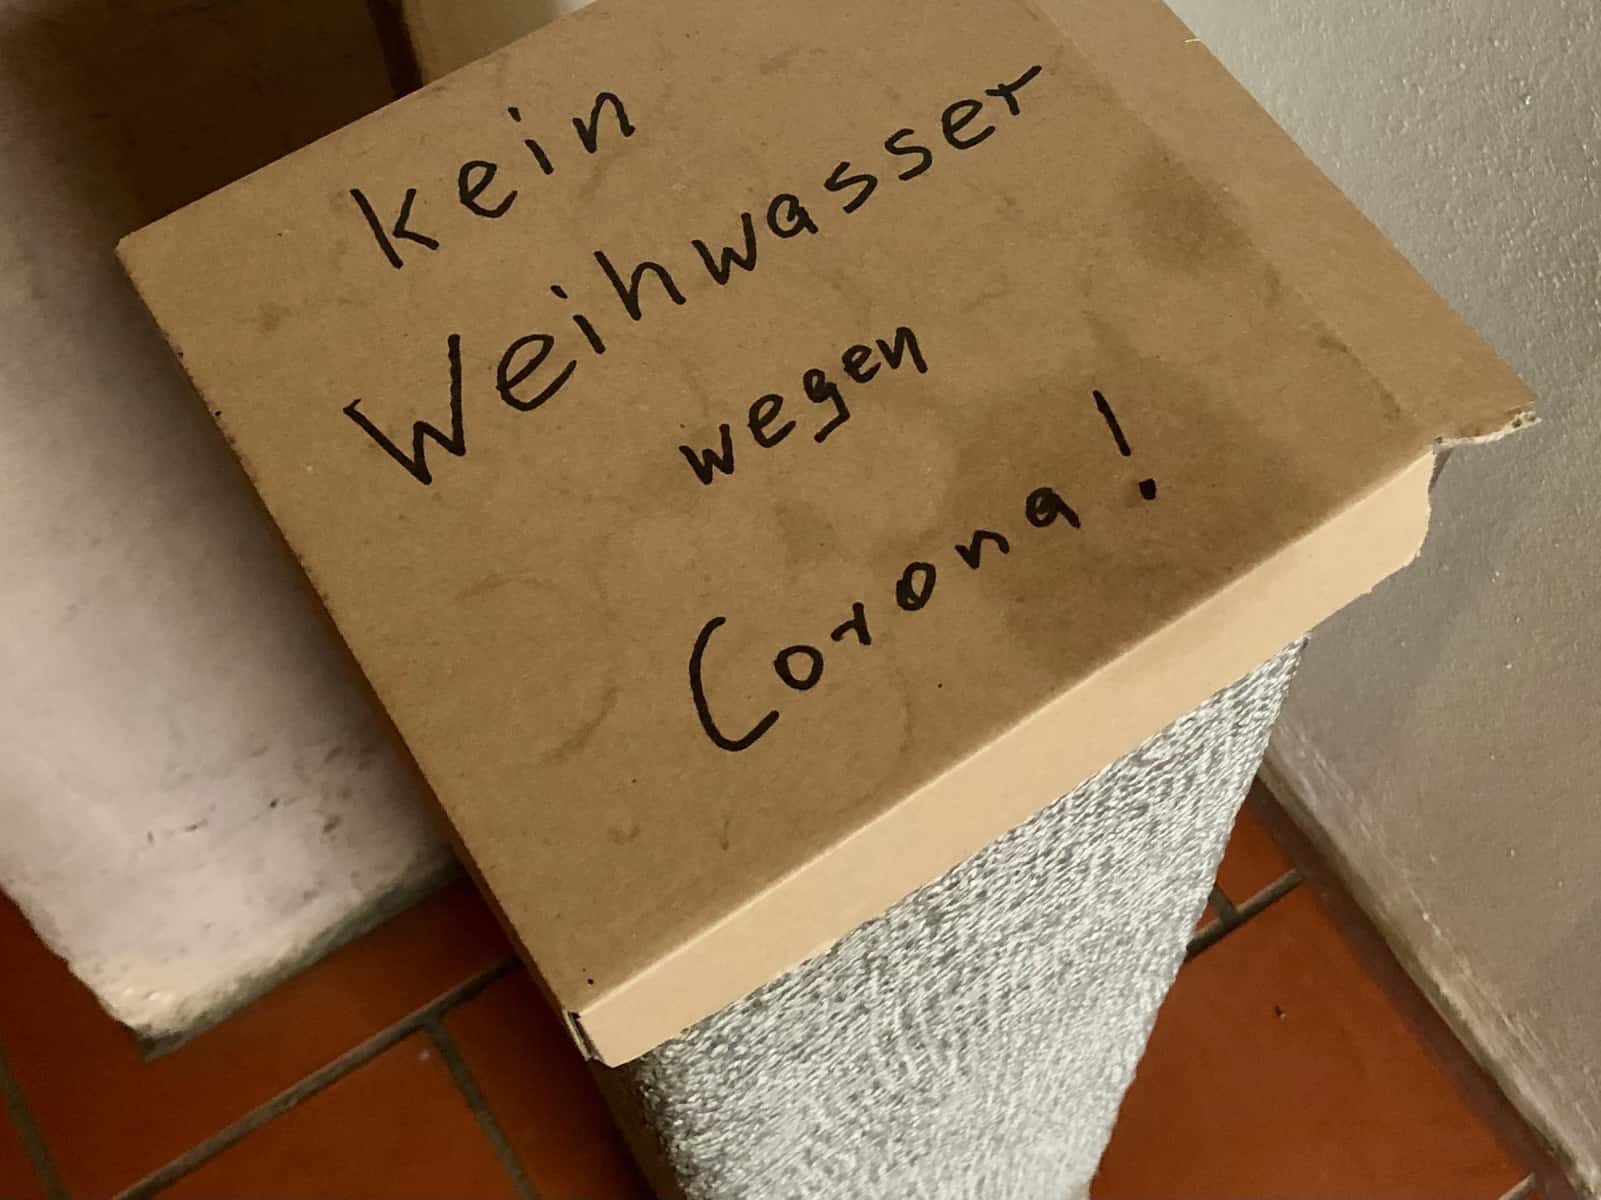 kein
Weihwasser
wegen
Corona!